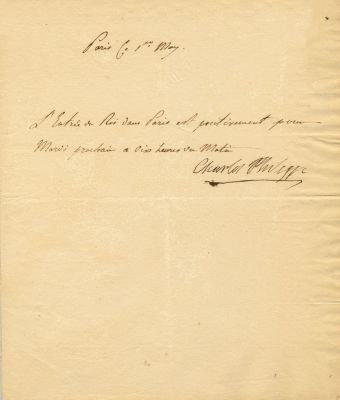 Paris Ce 1er May.
L'Entrée du Roi dans Paris est positivement pour
Mardi prochain a dix heures du Matin
Charles Philippe